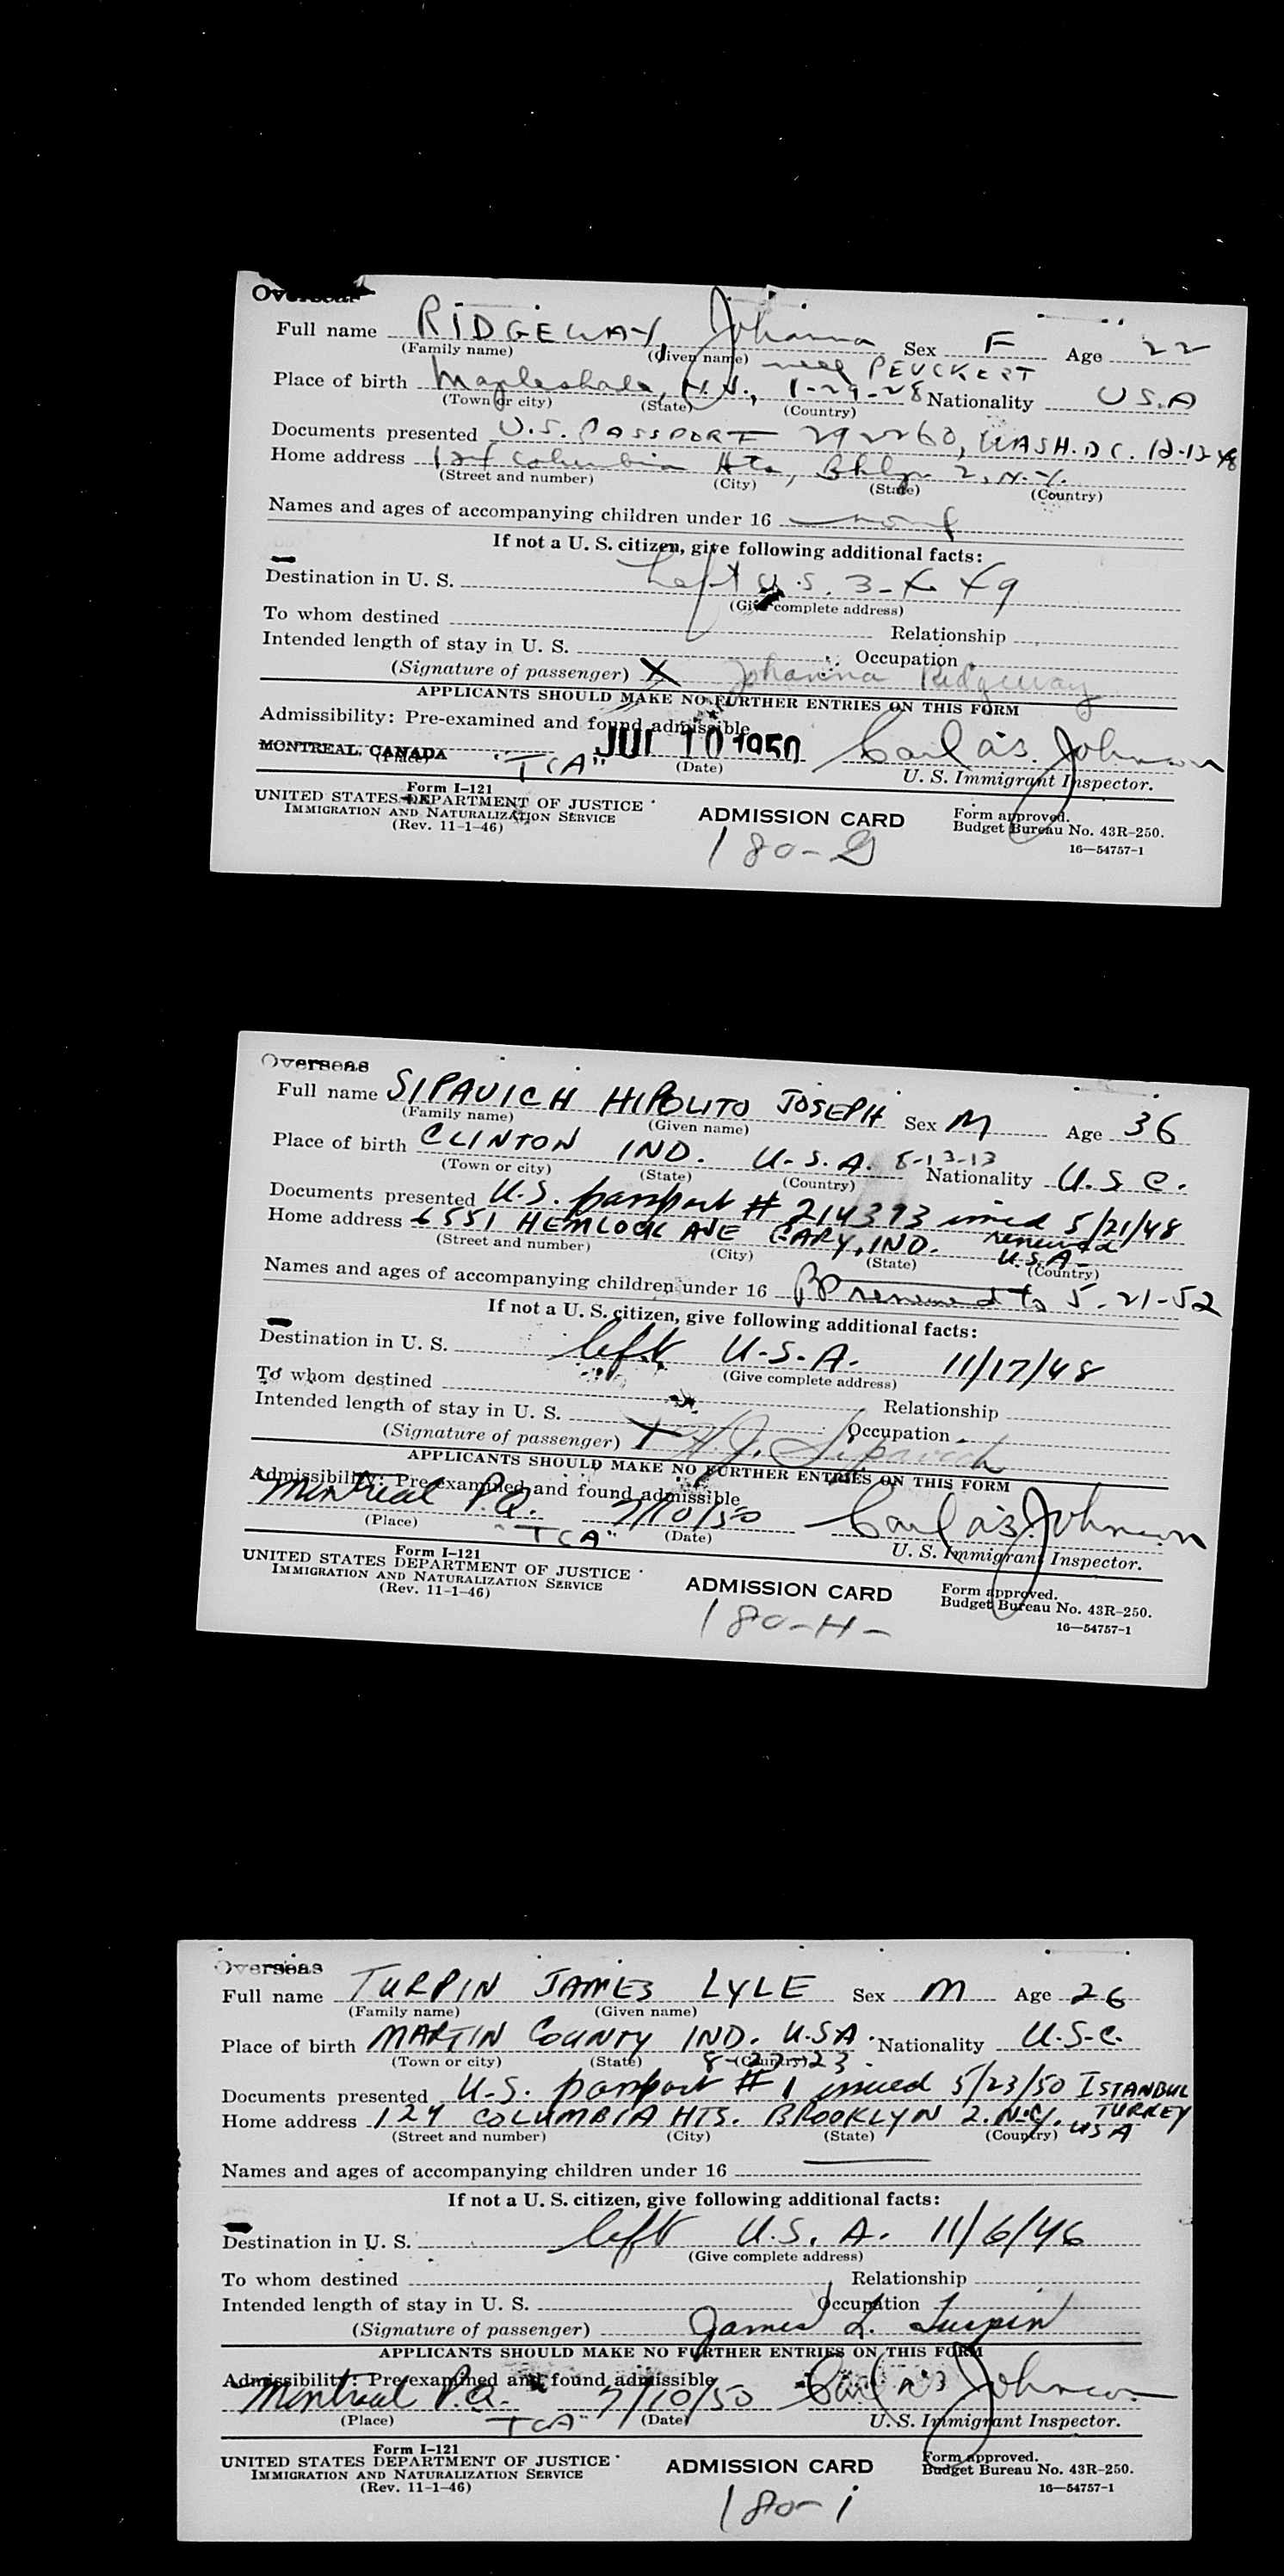 Overseas
Full name RIDGEWAY, Johanna Sex F Age 22
(Family name) (Given name) nee PEUCKERT
Place of birth Mapleshade, N.J., 1-29-28 Nationality U.S.A
(Town or city) (State) (Country)
Documents presented U.S. PASSPORT 292260, WASH. D.C. 12-13-48
Home address 124 Columbia Hts, Bklyn 2, N.Y.
(Street and number) (City) (State) (Country)
Names and ages of accompanying children under 16 none
If not a U. S. citizen, give following additional facts:
Destination in U. S. Left U.S. 3-4-49
(Give complete address)
To whom destined Relationship
Intended length of stay in U. S. Occupation
(Signature of passenger) X Johanna Ridgeway
APPLICANTS SHOULD MAKE NO FURTHER ENTRIES ON THIS FORM
Admissibility: Pre-examined and found admissible
MONTREAL, CANADA "TCA" JUL 10 1950 Carl A.S. Johnson
(Place) (Date) U. S. Immigrant Inspector.
Form I-121
UNITED STATES DEPARTMENT OF JUSTICE
IMMIGRATION AND NATURALIZATION SERVICE
(Rev. 11-1-46)
ADMISSION CARD
180-G
Form approved.
Budget Bureau No. 43R-250.
16—54757-1
Overseas
Full name SIPAVICH HIPOLITO JOSEPH Sex M Age 36
(Family name) (Given name)
Place of birth CLINTON IND. U.S.A. 8-13-13 Nationality U.S.C.
(Town or city) (State) (Country)
Documents presented U.S. passport # 214393 issued 5/21/48
renewed
Home address 6551 HEMLOCK AVE GARY, IND. U.S.A.
(Street and number) (City) (State) (Country)
Names and ages of accompanying children under 16 PP renewed to 5-21-52
If not a U. S. citizen, give following additional facts:
Destination in U. S. left U.S.A. 11/17/48
(Give complete address)
To whom destined Relationship
Intended length of stay in U. S. Occupation
(Signature of passenger) X H.J. Sipavich
APPLICANTS SHOULD MAKE NO FURTHER ENTRIES ON THIS FORM
Admissibility: Pre-examined and found admissible
Montreal P.Q. "TCA" 7/10/50 Carl A.S. Johnson
(Place) (Date) U. S. Immigrant Inspector.
Form I-121
UNITED STATES DEPARTMENT OF JUSTICE
IMMIGRATION AND NATURALIZATION SERVICE
(Rev. 11-1-46)
ADMISSION CARD
180-H-
Form approved.
Budget Bureau No. 43R-250.
16—54757-1
Overseas
Full name TURPIN JAMES LYLE Sex M Age 26
(Family name) (Given name)
Place of birth MARTIN COUNTY IND. U.S.A. Nationality U.S.C.
(Town or city) (State) (Country) 8-27-23
Documents presented U.S. passport # 1 issued 5/23/50 ISTANBUL
TURKEY
Home address 124 COLUMBIA HTS. BROOKLYN 2. N.Y. USA
(Street and number) (City) (State) (Country)
Names and ages of accompanying children under 16
If not a U. S. citizen, give following additional facts:
Destination in U. S. left U.S.A. 11/6/46
(Give complete address)
To whom destined Relationship
Intended length of stay in U. S. Occupation
(Signature of passenger) James L. Turpin
APPLICANTS SHOULD MAKE NO FURTHER ENTRIES ON THIS FORM
Admissibility: Pre-examined and found admissible
Montreal P.Q. "TCA" 7/10/50 Carl A.S. Johnson
(Place) (Date) U. S. Immigrant Inspector.
Form I-121
UNITED STATES DEPARTMENT OF JUSTICE
IMMIGRATION AND NATURALIZATION SERVICE
(Rev. 11-1-46)
ADMISSION CARD
180-i
Form approved.
Budget Bureau No. 43R-250.
16—54757-1